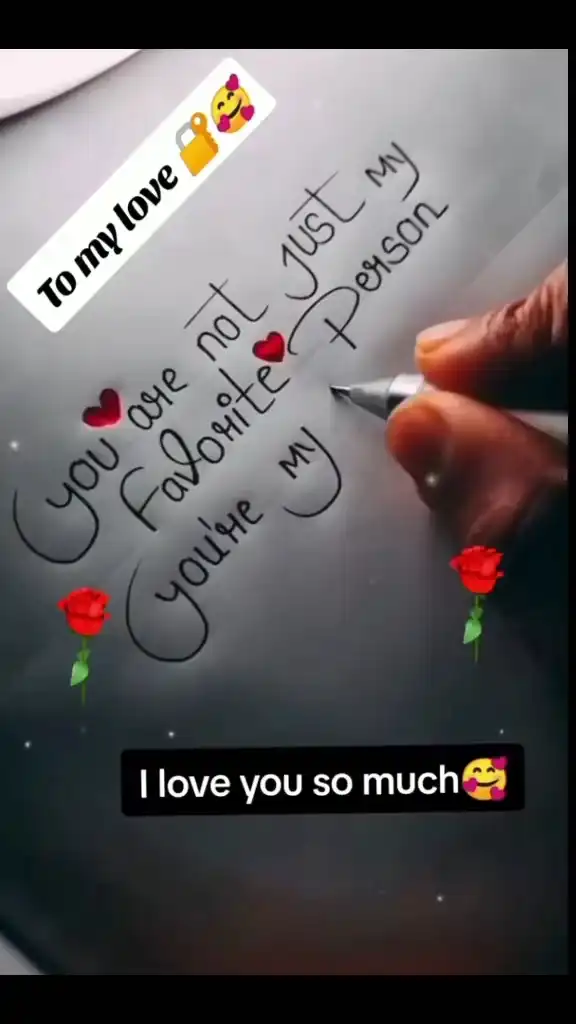 To my love 🔐🥰
you are not just my
Favorite Person
you're my
I love you so much🥰